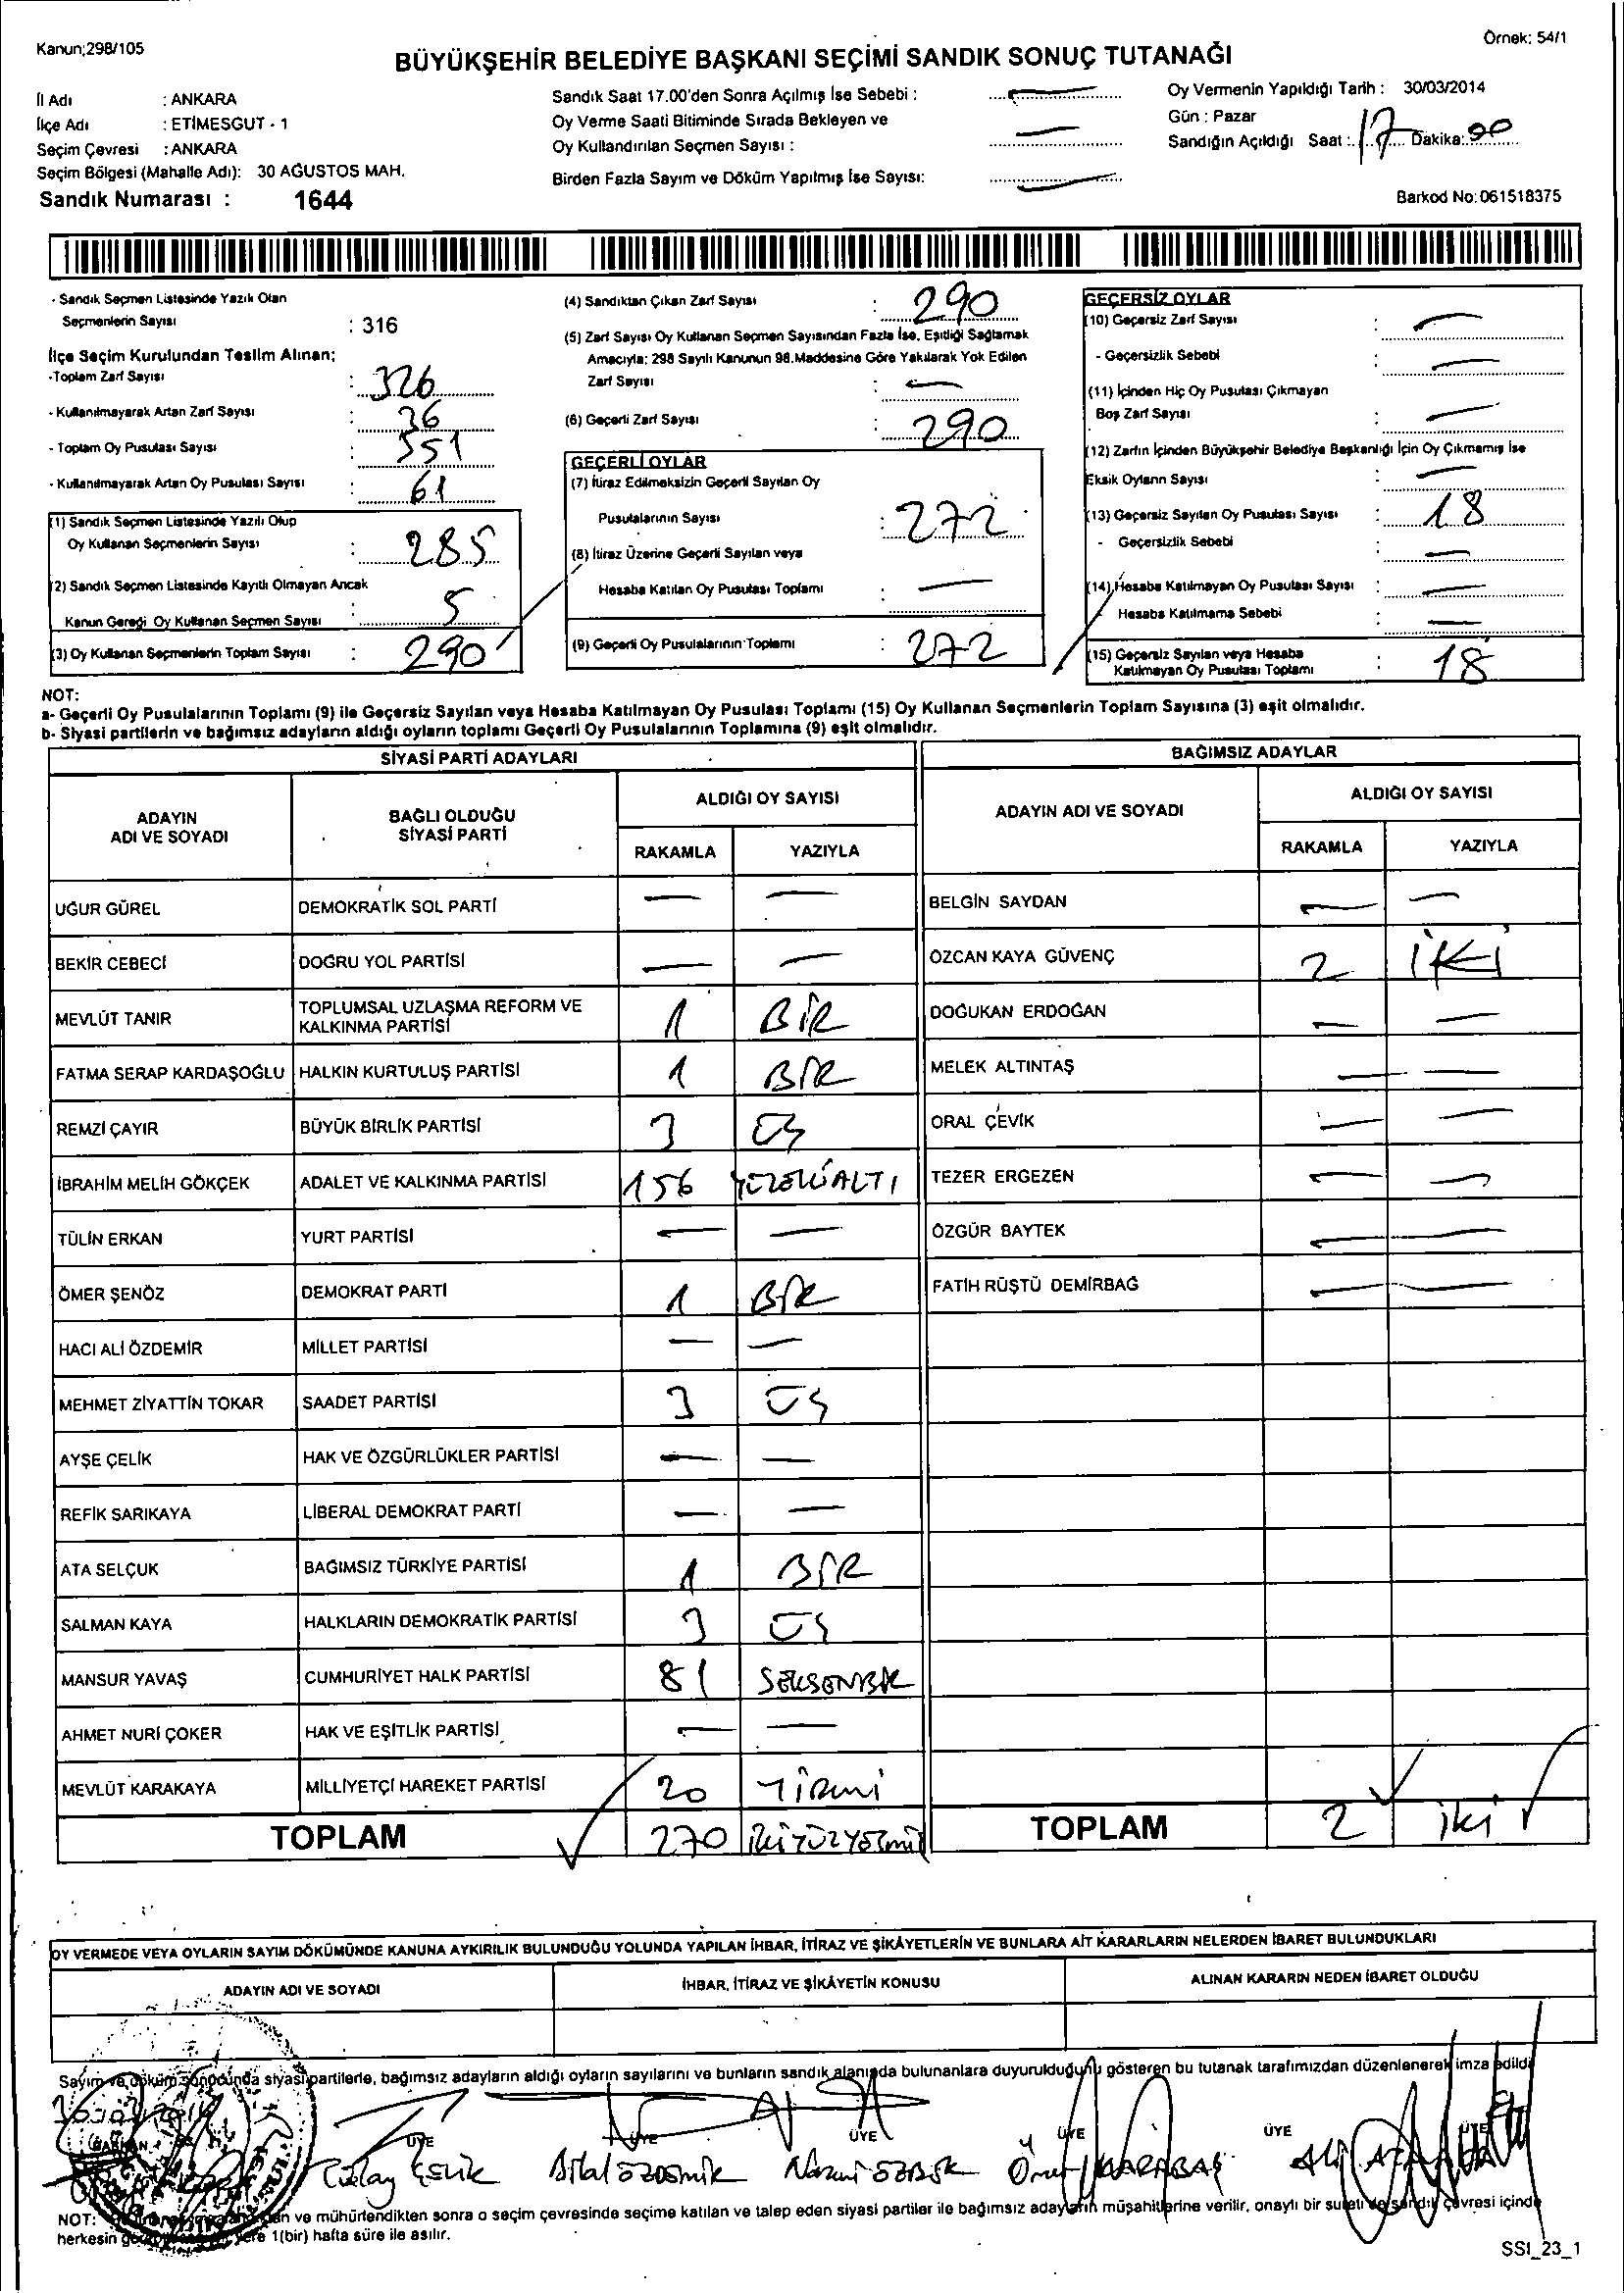 Kanun;298/105
Örnek: 54/1
BÜYÜKŞEHİR BELEDİYE BAŞKANI SEÇİMİ SANDIK SONUÇ TUTANAĞI
İl Adı : ANKARA
İlçe Adı : ETİMESGUT - 1
Seçim Çevresi : ANKARA
Seçim Bölgesi (Mahalle Adı): 30 AĞUSTOS MAH.
Sandık Numarası : 1644
Sandık Saat 17.00'den Sonra Açılmış İse Sebebi : —
Oy Verme Saati Bitiminde Sırada Bekleyen ve
Oy Kullandırılan Seçmen Sayısı : —
Birden Fazla Sayım ve Döküm Yapılmış İse Sayısı: —
Oy Vermenin Yapıldığı Tarih : 30/03/2014
Gün : Pazar
Sandığın Açıldığı Saat : 17 Dakika: 00
Barkod No:061518375
- Sandık Seçmen Listesinde Yazılı Olan
Seçmenlerin Sayısı : 316
İlçe Seçim Kurulundan Teslim Alınan;
-Toplam Zarf Sayısı : 326
- Kullanılmayarak Artan Zarf Sayısı : 36
- Toplam Oy Pusulası Sayısı : 351
- Kullanılmayarak Artan Oy Pusulası Sayısı : 61
(1) Sandık Seçmen Listesinde Yazılı Olup
Oy Kullanan Seçmenlerin Sayısı : 285
(2) Sandık Seçmen Listesinde Kayıtlı Olmayan Ancak
Kanun Gereği Oy Kullanan Seçmen Sayısı : 5
(3) Oy Kullanan Seçmenlerin Toplam Sayısı : 290
(4) Sandıktan Çıkan Zarf Sayısı : 290
(5) Zarf Sayısı Oy Kullanan Seçmen Sayısından Fazla İse, Eşitliği Sağlamak
Amacıyla; 298 Sayılı Kanunun 98.Maddesine Göre Yakılarak Yok Edilen
Zarf Sayısı : —
(6) Geçerli Zarf Sayısı : 290
GEÇERLİ OYLAR
(7) İtiraz Edilmeksizin Geçerli Sayılan Oy
Pusulalarının Sayısı : 272
(8) İtiraz Üzerine Geçerli Sayılan veya
Hesaba Katılan Oy Pusulası Toplamı : —
(9) Geçerli Oy Pusulalarının Toplamı : 272
GEÇERSİZ OYLAR
(10) Geçersiz Zarf Sayısı : —
- Geçersizlik Sebebi : —
(11) İçinden Hiç Oy Pusulası Çıkmayan
Boş Zarf Sayısı : —
(12) Zarfın İçinden Büyükşehir Belediye Başkanlığı İçin Oy Çıkmamış İse
Eksik Oyların Sayısı : —
(13) Geçersiz Sayılan Oy Pusulası Sayısı : 18
- Geçersizlik Sebebi : —
(14) Hesaba Katılmayan Oy Pusulası Sayısı : —
Hesaba Katılmama Sebebi : —
(15) Geçersiz Sayılan veya Hesaba
Katılmayan Oy Pusulası Toplamı : 18
NOT:
a- Geçerli Oy Pusulalarının Toplamı (9) ile Geçersiz Sayılan veya Hesaba Katılmayan Oy Pusulası Toplamı (15) Oy Kullanan Seçmenlerin Toplam Sayısına (3) eşit olmalıdır.
b- Siyasi partilerin ve bağımsız adayların aldığı oyların toplamı Geçerli Oy Pusulalarının Toplamına (9) eşit olmalıdır.
SİYASİ PARTİ ADAYLARI
ADAYIN ADI VE SOYADI
BAĞLI OLDUĞU SİYASİ PARTİ
ALDIĞI OY SAYISI
RAKAMLA YAZIYLA
UĞUR GÜREL DEMOKRATİK SOL PARTİ — —
BEKİR CEBECİ DOĞRU YOL PARTİSİ — —
MEVLÜT TANIR TOPLUMSAL UZLAŞMA REFORM VE KALKINMA PARTİSİ 1 BİR
FATMA SERAP KARDAŞOĞLU HALKIN KURTULUŞ PARTİSİ 1 BİR
REMZİ ÇAYIR BÜYÜK BİRLİK PARTİSİ 3 ÜÇ
İBRAHİM MELİH GÖKÇEK ADALET VE KALKINMA PARTİSİ 156 YÜZELLİALTI
TÜLİN ERKAN YURT PARTİSİ — —
ÖMER ŞENÖZ DEMOKRAT PARTİ 1 BİR
HACI ALİ ÖZDEMİR MİLLET PARTİSİ — —
MEHMET ZİYATTİN TOKAR SAADET PARTİSİ 3 ÜÇ
AYŞE ÇELİK HAK VE ÖZGÜRLÜKLER PARTİSİ — —
REFİK SARIKAYA LİBERAL DEMOKRAT PARTİ — —
ATA SELÇUK BAĞIMSIZ TÜRKİYE PARTİSİ 1 BİR
SALMAN KAYA HALKLARIN DEMOKRATİK PARTİSİ 3 ÜÇ
MANSUR YAVAŞ CUMHURİYET HALK PARTİSİ 81 SEKSENBİR
AHMET NURİ ÇOKER HAK VE EŞİTLİK PARTİSİ — —
MEVLÜT KARAKAYA MİLLİYETÇİ HAREKET PARTİSİ 20 YİRMİ
TOPLAM 270 İKİYÜZYETMİŞ
BAĞIMSIZ ADAYLAR
ADAYIN ADI VE SOYADI
ALDIĞI OY SAYISI
RAKAMLA YAZIYLA
BELGİN SAYDAN — —
ÖZCAN KAYA GÜVENÇ 2 İKİ
DOĞUKAN ERDOĞAN — —
MELEK ALTINTAŞ — —
ORAL ÇEVİK — —
TEZER ERGEZEN — —
ÖZGÜR BAYTEK — —
FATİH RÜŞTÜ DEMİRBAĞ — —
TOPLAM 2 iki
OY VERMEDE VEYA OYLARIN SAYIM DÖKÜMÜNDE KANUNA AYKIRILIK BULUNDUĞU YOLUNDA YAPILAN İHBAR, İTİRAZ VE ŞİKÂYETLERİN VE BUNLARA AİT KARARLARIN NELERDEN İBARET BULUNDUKLARI
ADAYIN ADI VE SOYADI
İHBAR, İTİRAZ VE ŞİKÂYETİN KONUSU
ALINAN KARARIN NEDEN İBARET OLDUĞU
Sayım ve döküm sonucunda siyasi partilerle, bağımsız adayların aldığı oyların sayılarını ve bunların sandık alanında bulunanlara duyurulduğunu gösteren bu tutanak tarafımızdan düzenlenerek imza edildi
BAŞKAN ÜYE ÜYE ÜYE ÜYE ÜYE ÜYE
NOT: ve mühürlendikten sonra o seçim çevresinde seçime katılan ve talep eden siyasi partiler ile bağımsız adayların müşahitlerine verilir, onaylı bir sureti de sandık çevresi içinde
herkesin yere 1(bir) hafta süre ile asılır.
SSI_23_1